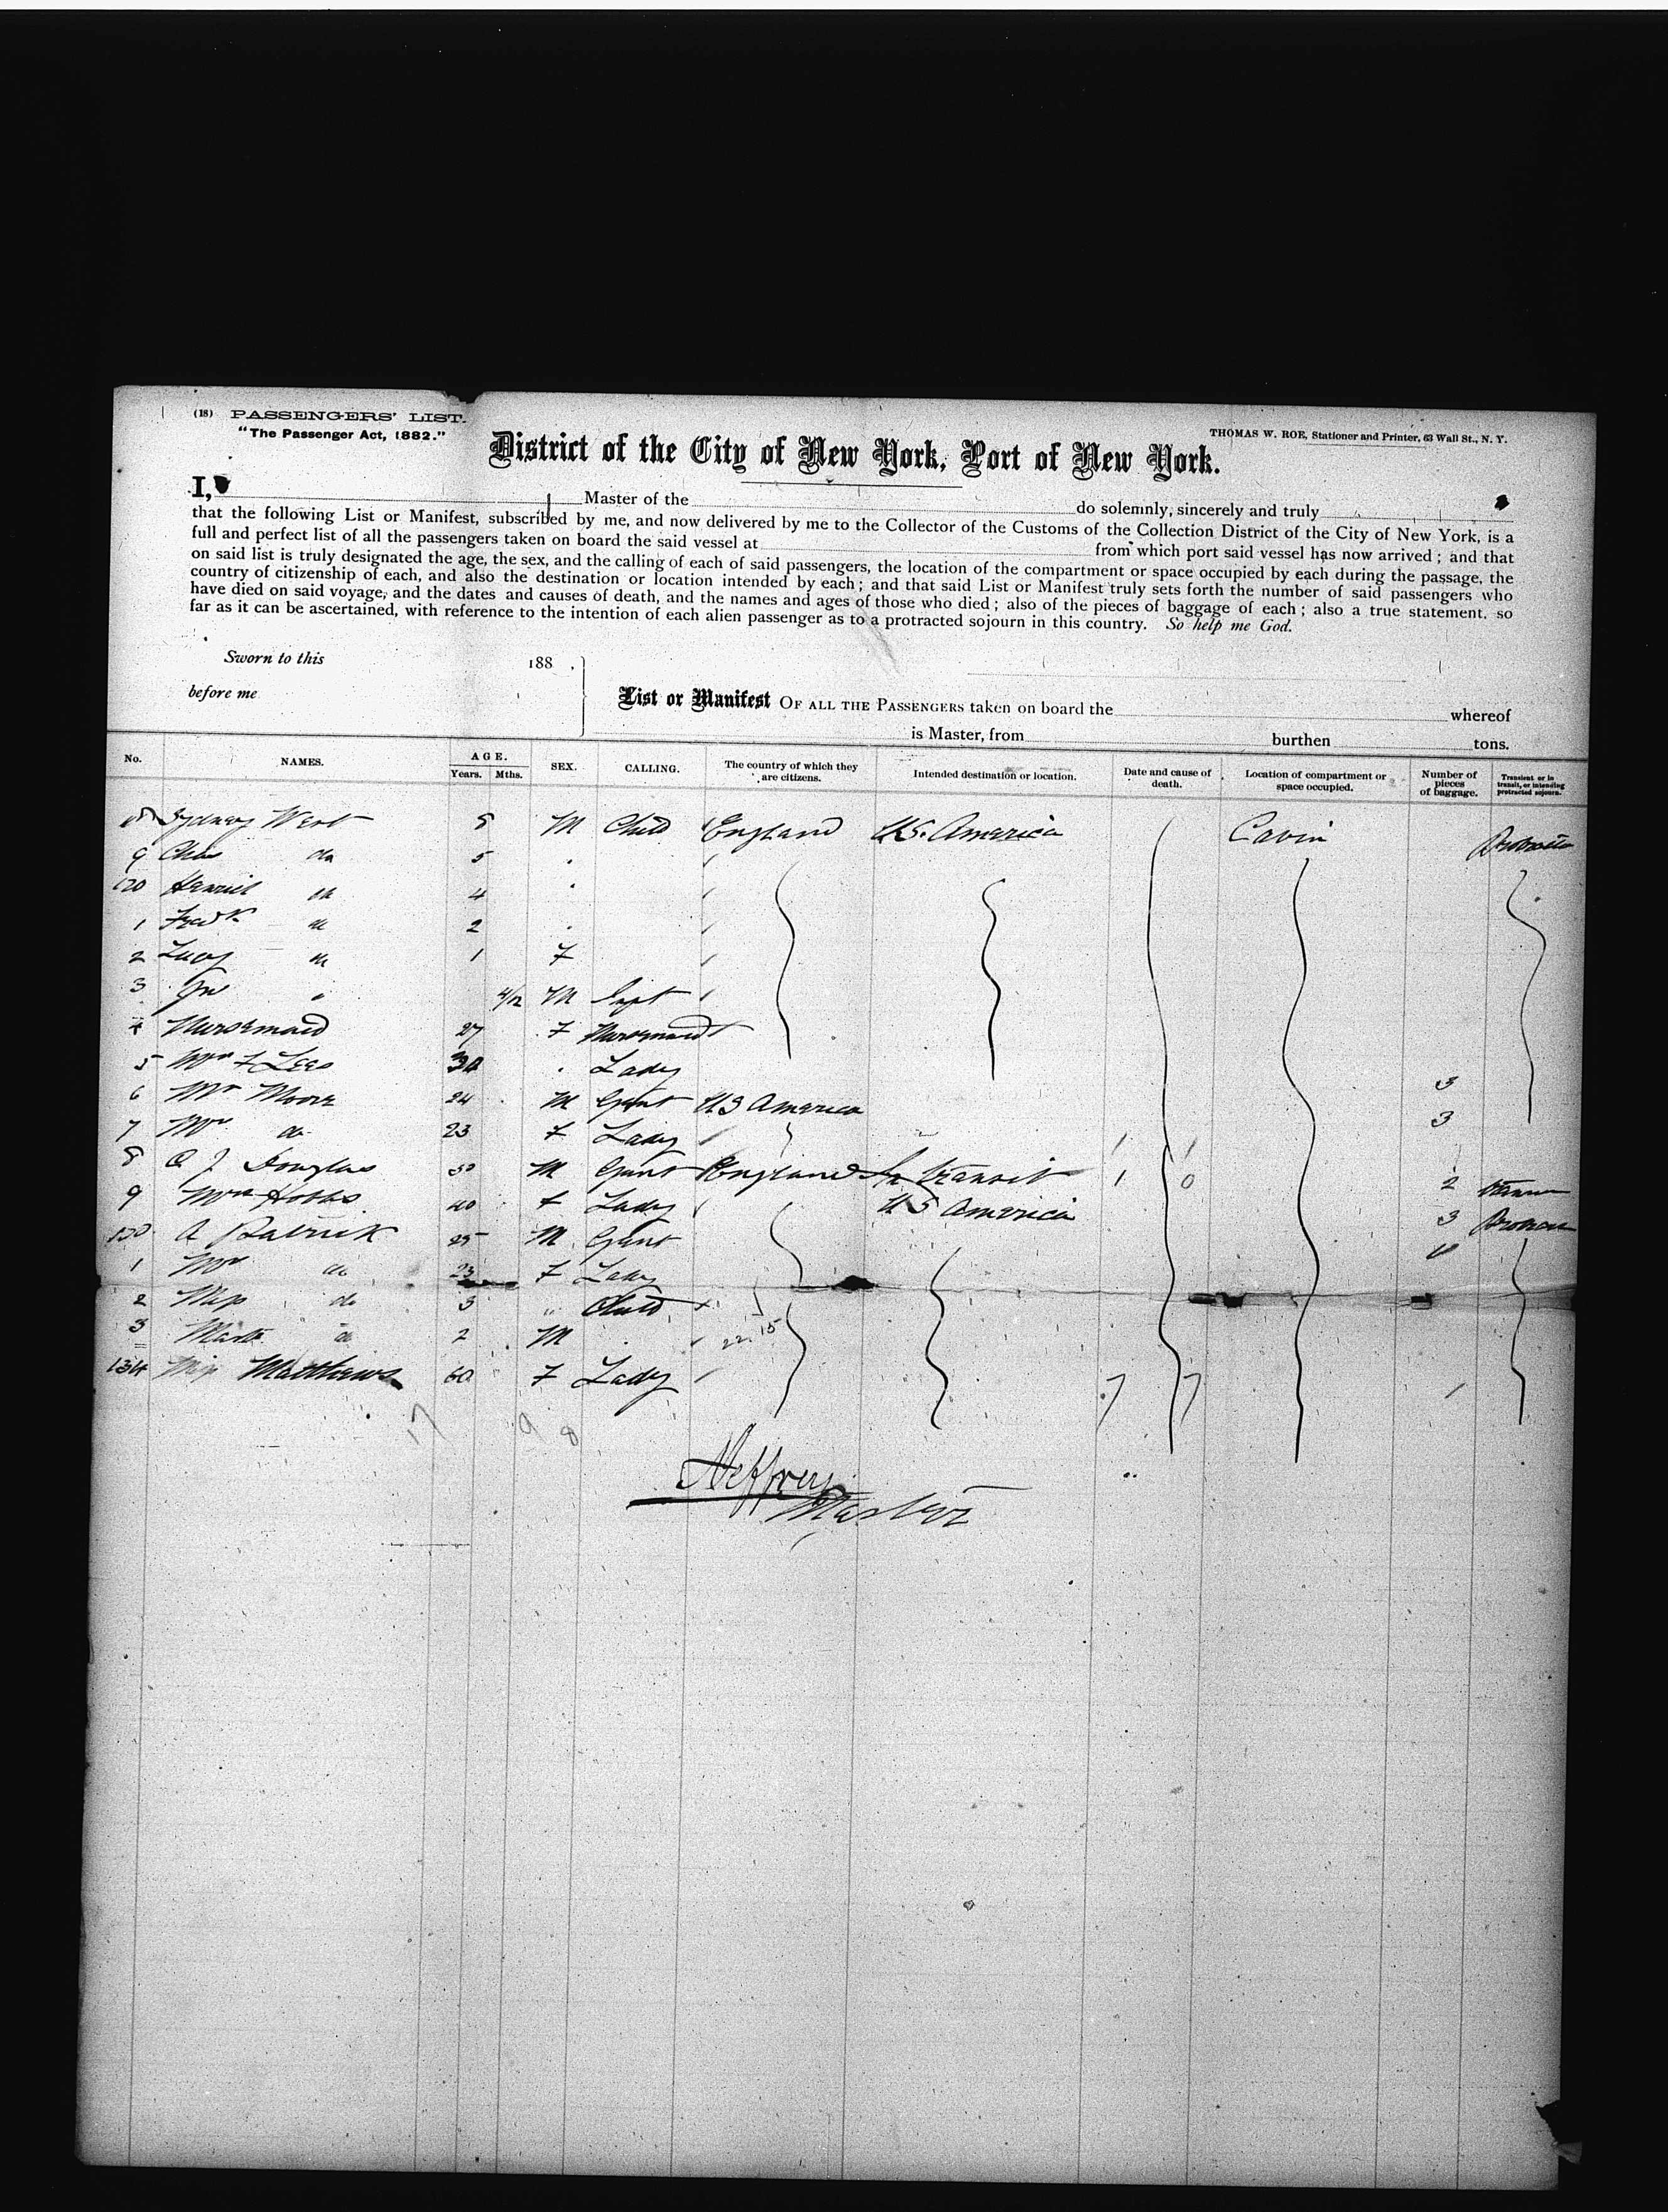 (18) PASSENGERS' LIST.
"The Passenger Act, 1882."
THOMAS W. ROE, Stationer and Printer, 63 Wall St., N. Y.
District of the City of New York, Port of New York.
I, Master of the do solemnly, sincerely and truly
that the following List or Manifest, subscribed by me, and now delivered by me to the Collector of the Customs of the Collection District of the City of New York, is a
full and perfect list of all the passengers taken on board the said vessel at from which port said vessel has now arrived ; and that
on said list is truly designated the age, the sex, and the calling of each of said passengers, the location of the compartment or space occupied by each during the passage, the
country of citizenship of each, and also the destination or location intended by each ; and that said List or Manifest truly sets forth the number of said passengers who
have died on said voyage, and the dates and causes of death, and the names and ages of those who died ; also of the pieces of baggage of each ; also a true statement. so
far as it can be ascertained, with reference to the intention of each alien passenger as to a protracted sojourn in this country. So help me God.
Sworn to this 188 .
before me
List or Manifest OF ALL THE PASSENGERS taken on board the whereof
is Master, from burthen tons.
No. NAMES. AGE. Years. Mths. SEX. CALLING. The country of which they are citizens. Intended destination or location. Date and cause of death. Location of compartment or space occupied. Number of pieces of baggage. Transient or in transit, or intending protracted sojourn.
8 Sydney West 8 M Child England U.S. America Cabin
9 Chas do 5
120 do 4
1 Fredk do 2
2 Lucy do 1 F
3 " 4/12 M Inft
4 Nursemaid 27 F Nursemaid
5 Mrs F Lees Lady
6 Mr Moore 24 M Gent U S America 3
7 Mrs do 23 F Lady 3
8 Douglas 50 M Gent England In transit 1 0 2
9 Mrs Hobbs 40 F Lady U S America 3
130 A Patrick 25 M Gent
1 Mrs do 23 F Lady
2 Miss do 3 " Child x
3 Mastr do 2 M 22. 15
134 Miss Matthews 60 F Lady 7 7 1
17 9 8
Jeffrey
Master